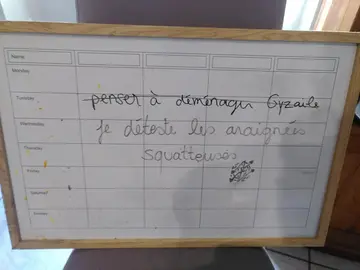 Name
Monday
Tuesday
penser à déménager Gyzaile
Wednesday
je déteste les araignées
Thursday
squatteuses
Friday
Saturday
Sunday